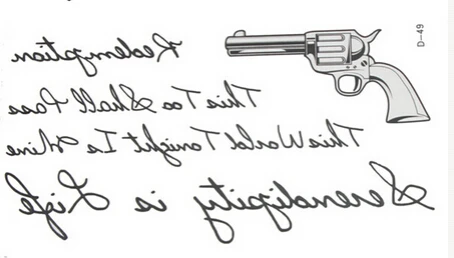 D-49
Redemption
This Too Shall Pass
This World Tonight Is Mine
Serendipity is Life